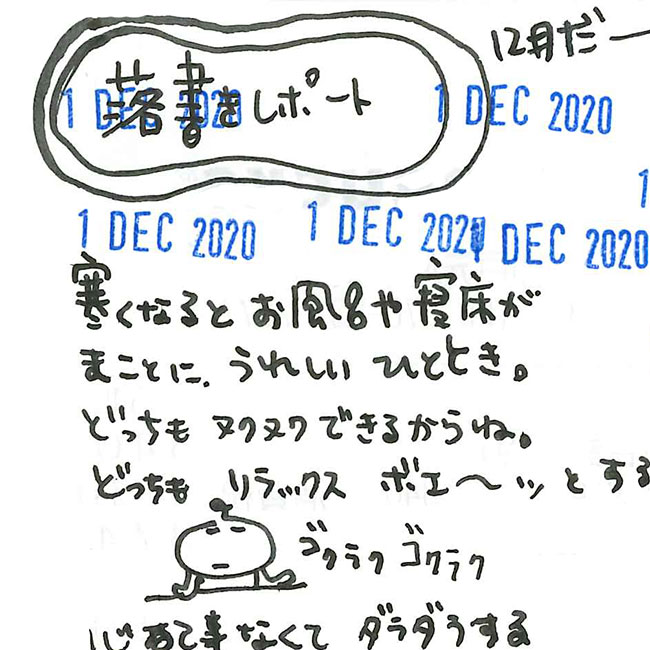 12月だー
落書きレポート
1 DEC 2020
1 DEC 2020
1 DEC 2020
1 DEC 202
DEC 2020
1
寒くなるとお風呂や寝床が
まことに、うれしいひととき。
どっちもヌクヌクできるからね。
どっちも リラックス ボエ〜ッとする
ゴクラク ゴクラク
ダラダラする